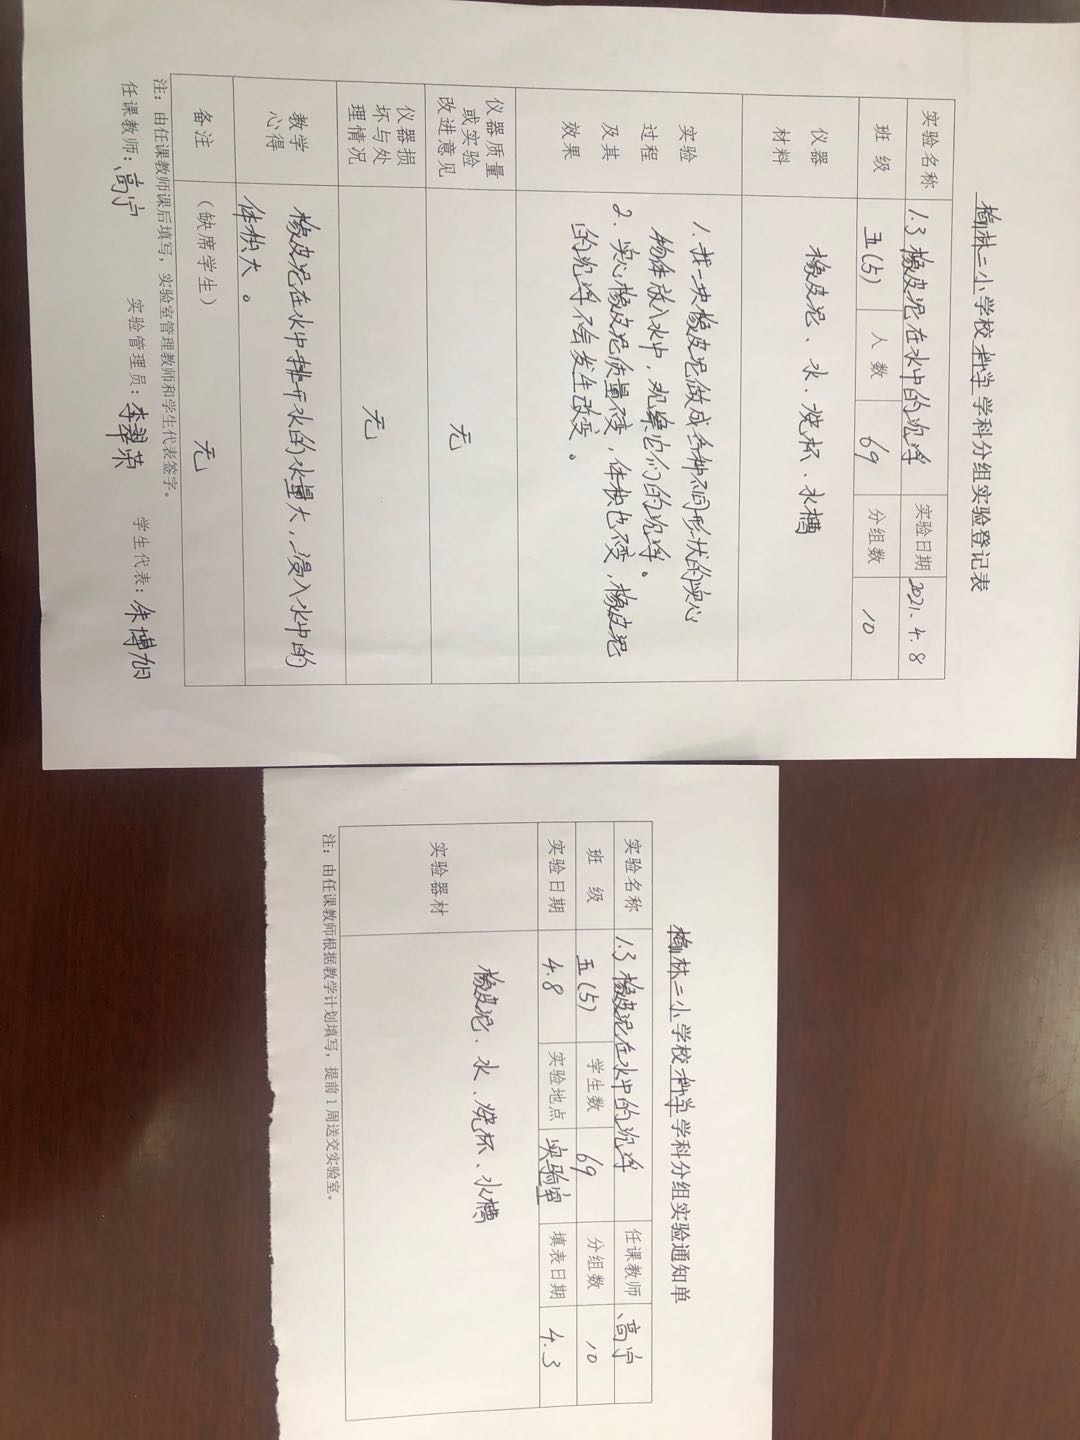 榆林二小学校科学学科分组实验登记表
实验名称 1.3 橡皮泥在水中的沉浮 实验日期 2021.4.8
班 级 五(5) 人 数 69 分组数 10
仪器
材料
橡皮泥、水、烧杯、水槽
实验
过程
及其
效果
1. 找一块橡皮泥做成各种不同形状的实心
物体放入水中,观察它们的沉浮。
2. 实心橡皮泥质量不变,体积也不变,橡皮泥
的沉浮不会发生改变。
仪器质量
或实验
改进意见
无
仪器损
坏与处
理情况
无
教学
心得
橡皮泥在水中排开水的水量大,浸入水中的
体积大。
备注 (缺席学生) 无
注:由任课教师课后填写,实验室管理教师和学生代表签字。
任课教师:高宁 实验管理员:李翠荣 学生代表:朱博旭
榆林二小学校科学学科分组实验通知单
实验名称 1.3 橡皮泥在水中的沉浮 任课教师 高宁
班 级 五(5) 学生数 69 分组数 10
实验日期 4.8 实验地点 实验室 填表日期 4.3
实验器材 橡皮泥、水、烧杯、水槽
注:由任课教师根据教学计划填写,提前1周送交实验室。